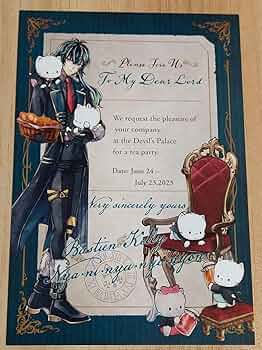 Please Join Us
To My Dear Lord
We request the pleasure of
your company
at the Devil's Palace
for a tea party.
Date: June 24 -
July 23,2023
Very sincerely yours,
Bastien Kitty
Nya-ni-nya-nyo-nyon